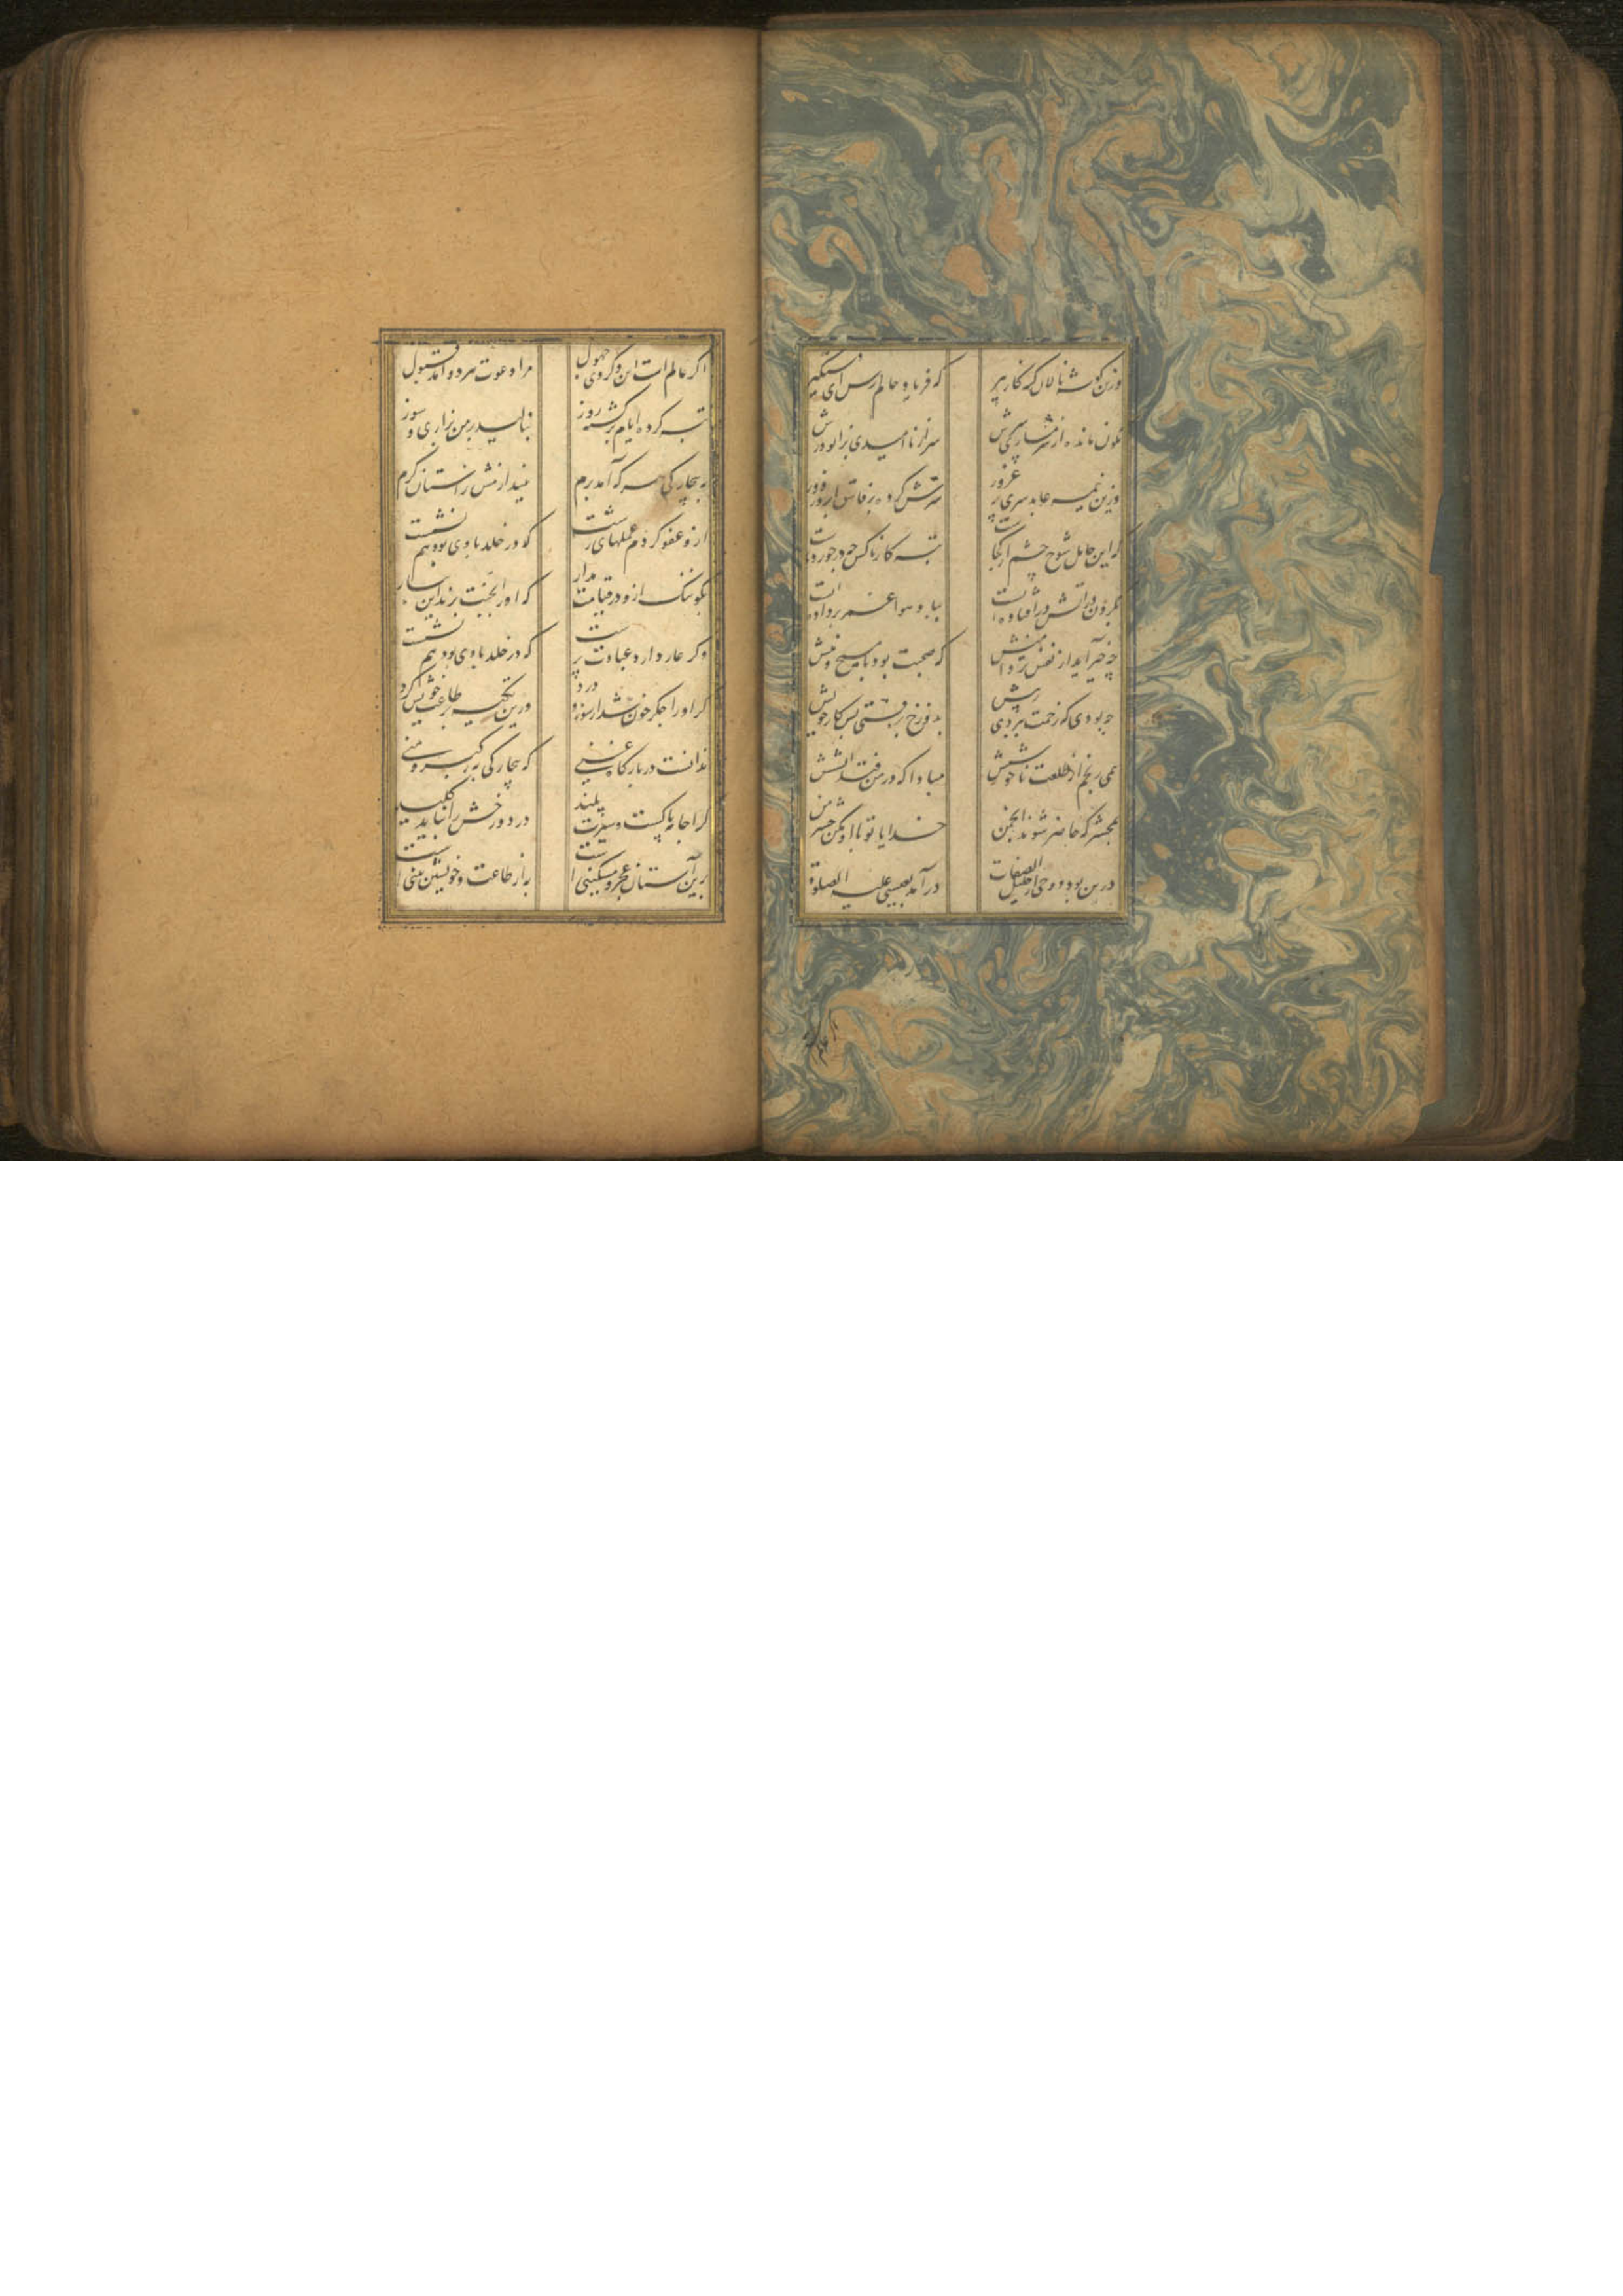 وزین گوشه نالان گنه کار پیر که فریاد حالم رس ای دستگیر
نگون مانده از شرمساری سرش سر از ناامیدی بزانو درش
وزین نیمه عابد سری پر غرور ترش کرده بر فاسق ابرو ز دور
که این جاهل شوخ چشم از کجاست تبه کار ناکس چه در خورد ماست
بگردن در آتش در افتاده است بباد هوا عمر بر داده است
چه خیر آید از نفس تر دامنش که صحبت بود با مسیح و منش
چه بودی که زحمت ببردی ز پیش بدوزخ برفتی پس کار خویش
همی رنجم از طلعت ناخوشش مبادا که در من فتد آتشش
بمحشر که حاضر شوند انجمن خدایا تو با او مکن حشر من
درین بود و وحی از جلیل الصفات در آمد بعیسی علیه الصلوة
اگر عالم است این و گر وی جهول مرا دعوت هر دو آمد قبول
تبه کرده ایام برگشته روز بنالید بر من بزاری و سوز
به بیچارگی هر که آمد برم نیندازمش ز آستان کرم
ازو عفو کردم عملهای زشت که در خلد با وی بود هم نشست
بگو ننگ ازو در قیامت مدار که او را بجنت برند این بنار
وگر عار دارد عبادت پرست که در خلد با وی بود هم نشست
که او را جگر خون شد از سوز و درد ورین تکیه بر طاعت خویش کرد
ندانست در بارگاه غنی که بیچارگی به ز کبر و منی
کرا جامه پاکست و سیرت پلید در دوزخش را نباید کلید
برین آستان عجز و مسکینیت به از طاعت و خویشتن بینیت